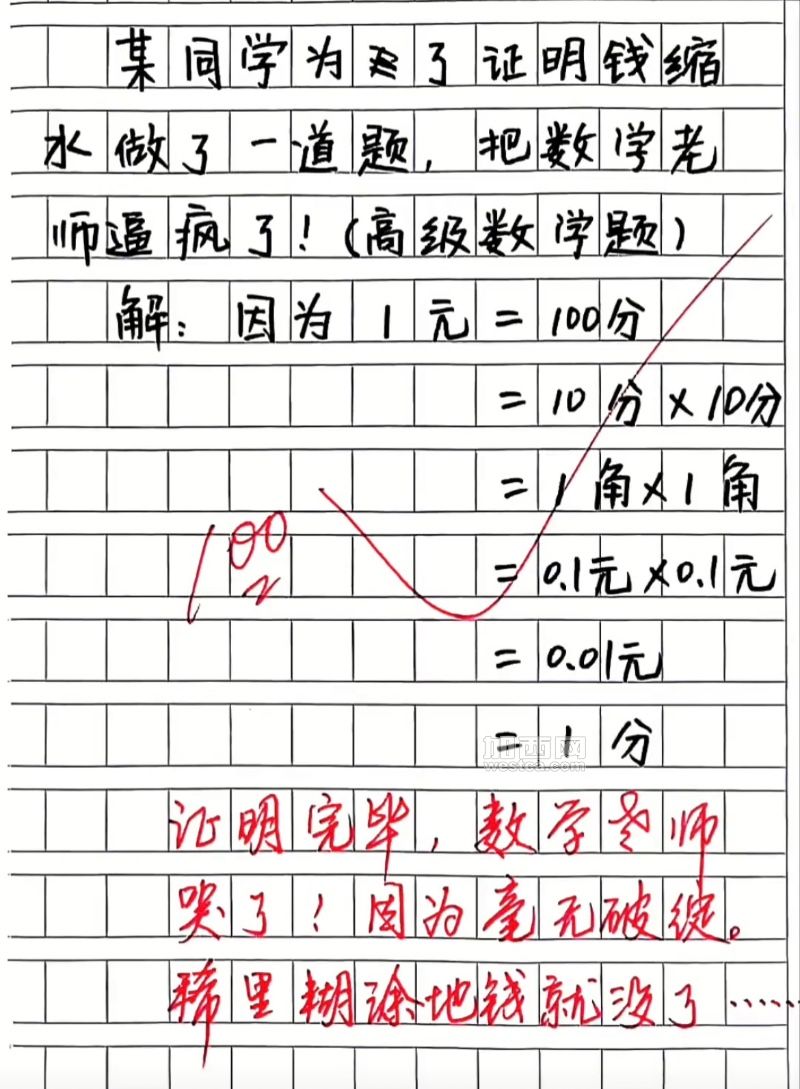 某同学为了证明钱缩
水做了一道题，把数学老
师逼疯了！(高级数学题)
解：因为1元=100分
=10分×10分
=1角×1角
=0.1元×0.1元
100
=0.01元
=1分
加西网
westca.com
证明完毕，数学老师
哭了！因为毫无破绽。
稀里糊涂地钱就没了……